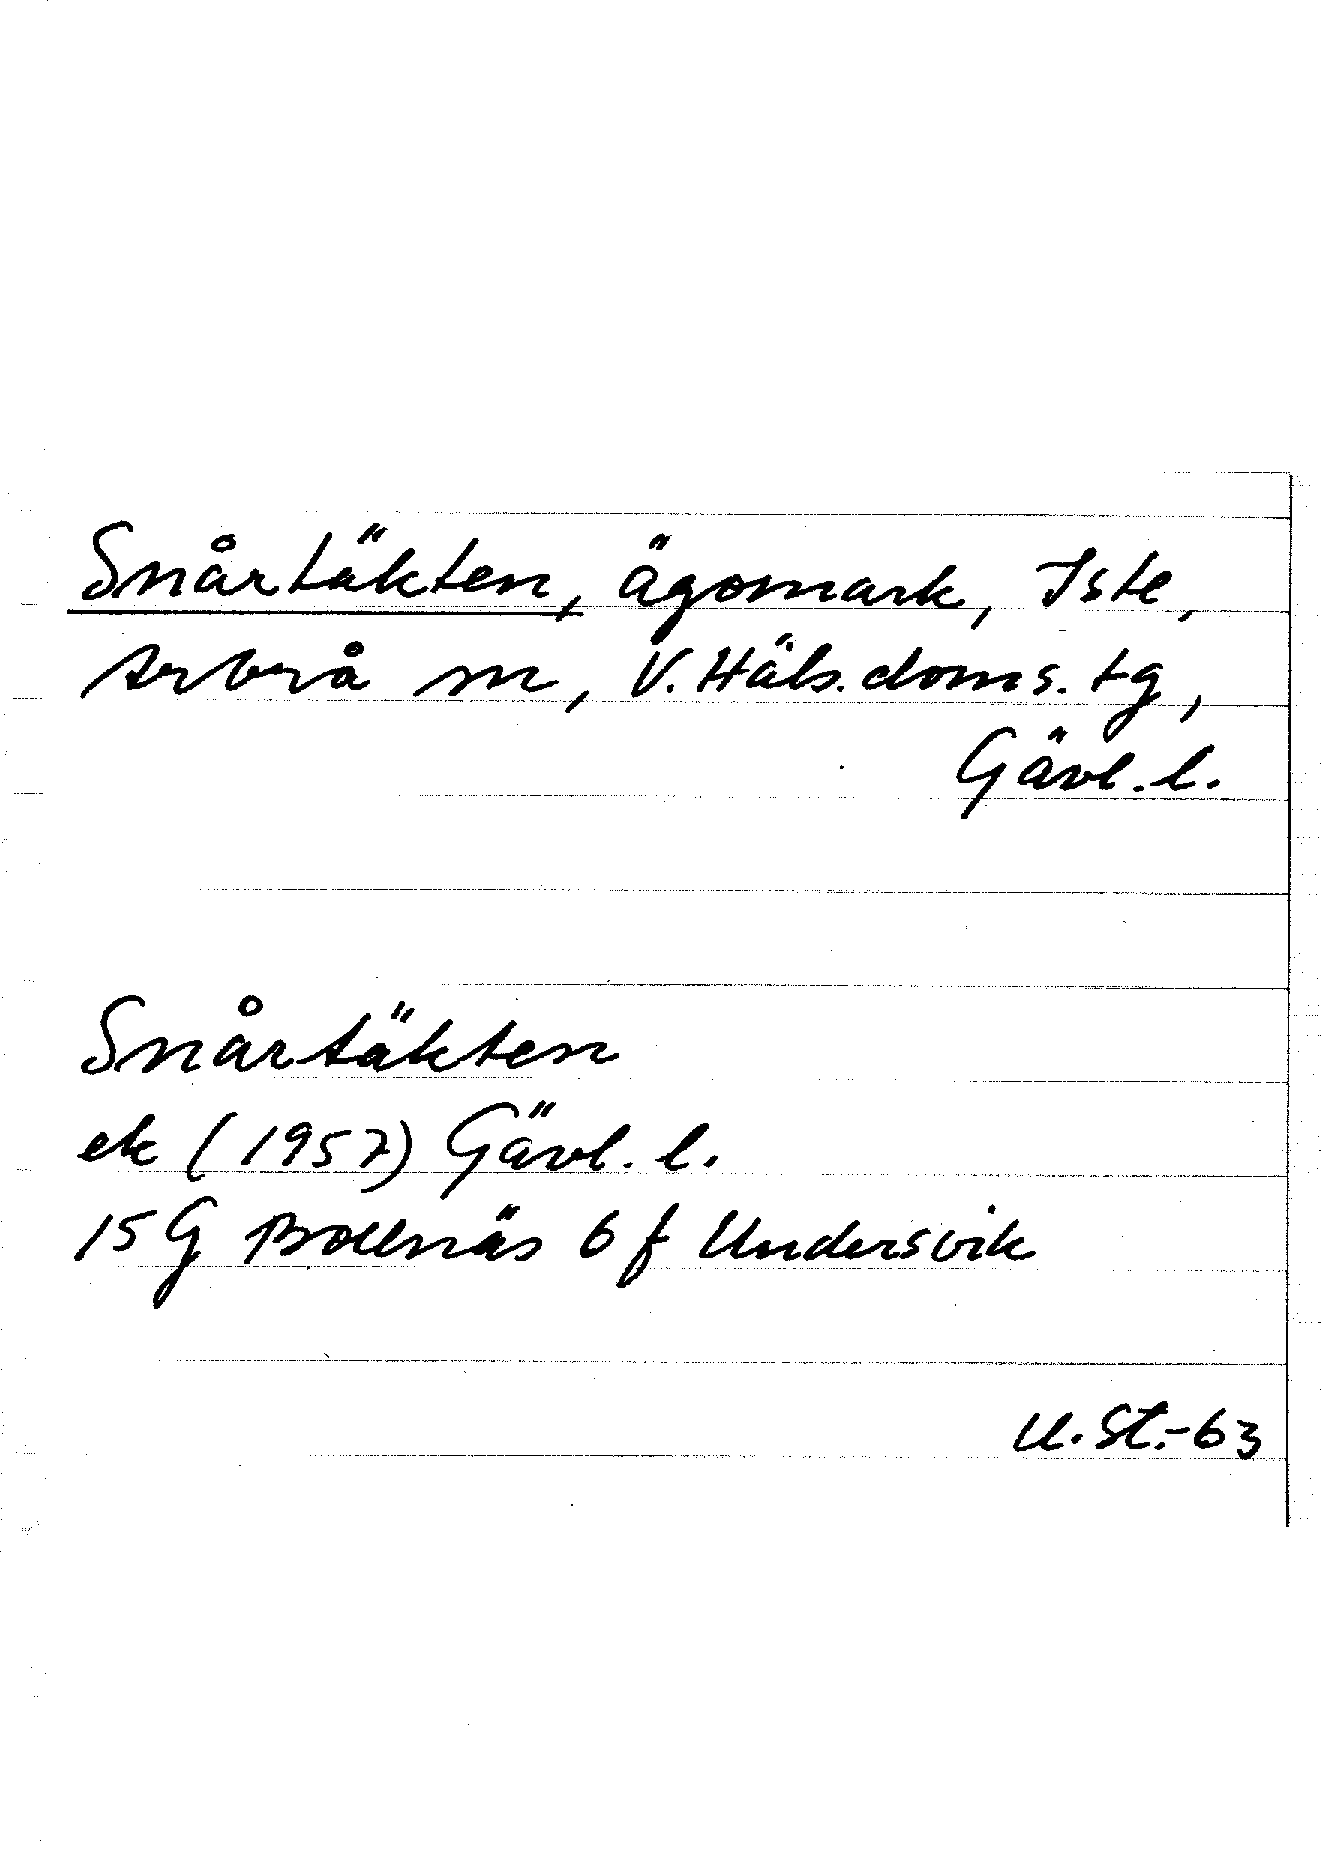 Snårtäkten, ägomark, Iste,
Arbrå sn, V. Häls. doms. tg,
Gävl. l.
Snårtäkten
ek (1957) Gävl. l.
15 G Bollnäs 6 f Undersvik
U. St. -63